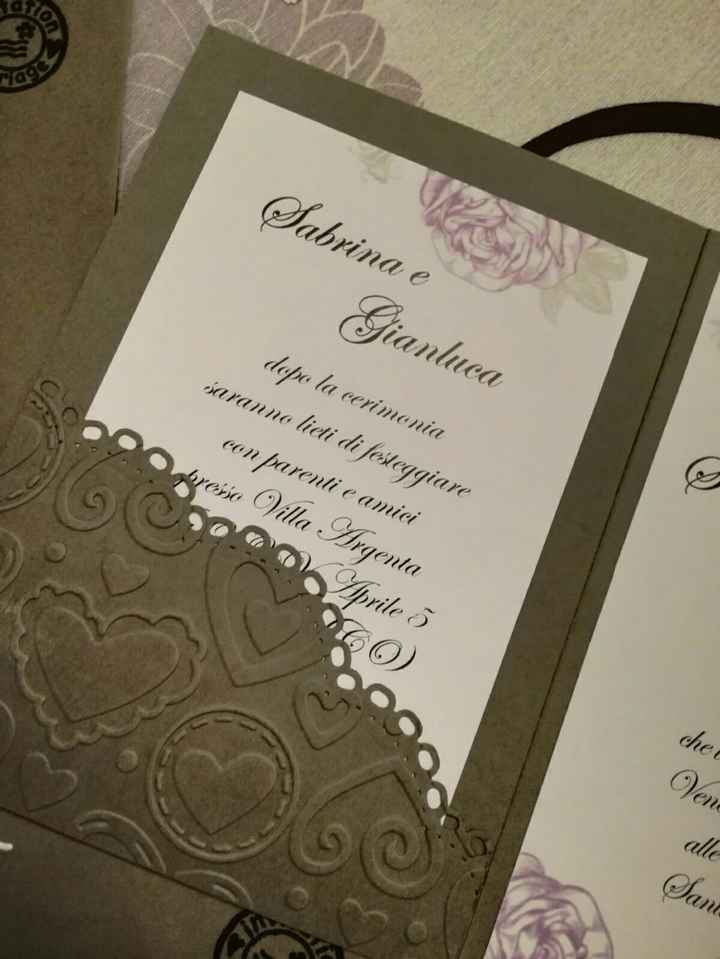 Sabrina e
Gianluca
dopo la cerimonia
saranno lieti di festeggiare
con parenti e amici
presso Villa Argenta
Aprile 5
(CO)
S
che
Ven
alle
Sant